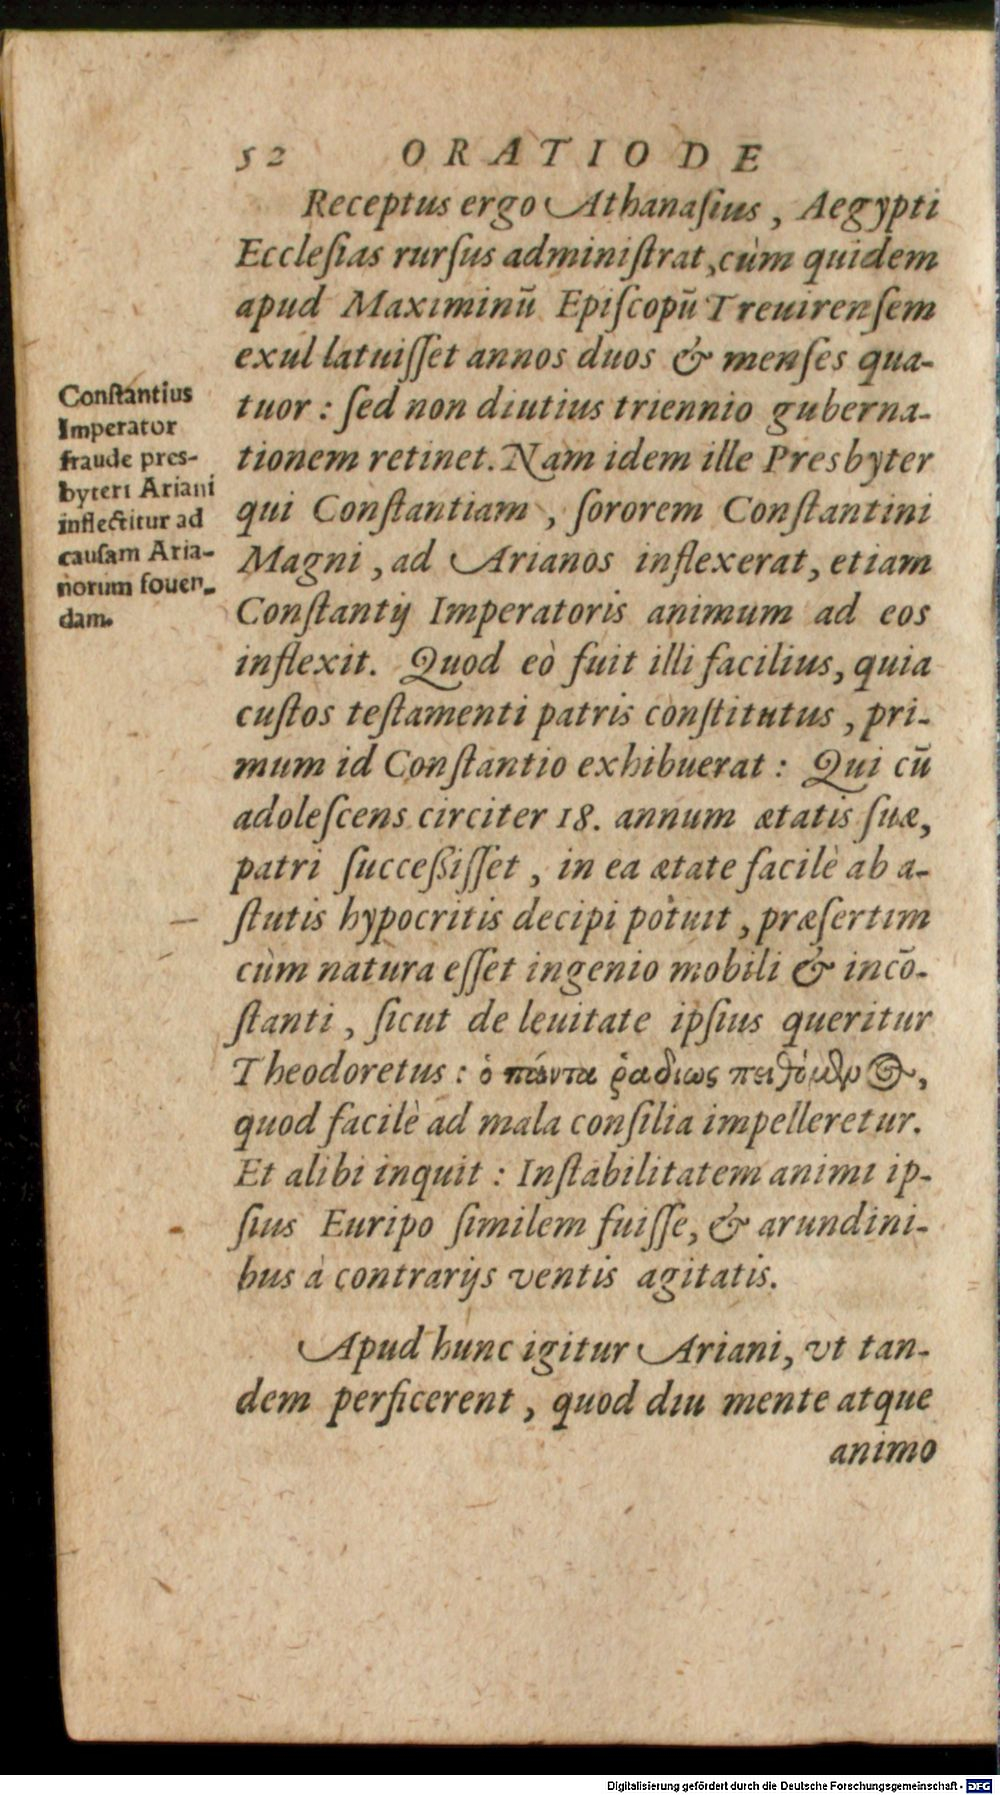 52 ORATIO DE
Receptus ergo Athanaſius, Aegypti
Eccleſias rurſus adminiſtrat, cùm quidem
apud Maximinū Epiſcopū Treuirenſem
exul latuiſſet annos duos & menſes qua-
tuor : ſed non diutius triennio guberna-
tionem retinet. Nam idem ille Presbyter
qui Conſtantiam, ſororem Conſtantini
Magni, ad Arianos inflexerat, etiam
Conſtantij Imperatoris animum ad eos
inflexit. Quod eò fuit illi facilius, quia
cuſtos teſtamenti patris conſtitutus, pri-
mum id Conſtantio exhibuerat : Qui cū
adoleſcens circiter 18. annum ætatis ſuæ,
patri ſucceßiſſet, in ea ætate facilè ab a-
ſtutis hypocritis decipi potuit, præſertim
cùm natura eſſet ingenio mobili & incō-
ſtanti, ſicut de leuitate ipſius queritur
Theodoretus : ὁ πάντα ῥαδίως πειθόμενος,
quod facilè ad mala conſilia impelleretur.
Et alibi inquit : Inſtabilitatem animi ip-
ſius Euripo ſimilem fuiſſe, & arundini-
bus à contrarijs ventis agitatis.
Apud hunc igitur Ariani, vt tan-
dem perficerent, quod diu mente atque
animo
Conſtantius
Imperator
fraude pres-
byteri Ariani
inflectitur ad
cauſam Aria-
norum fouen-
dam.
Digitalisierung gefördert durch die Deutsche Forschungsgemeinschaft - DFG